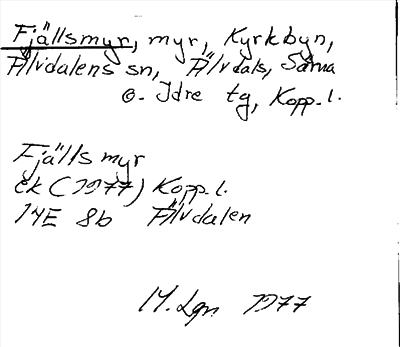 Fjällsmyr, myr, Kyrkbyn,
Älvdalens sn, Älvdals, Särna
o. Idre tg, Kopp. l.
Fjällsmyr
ek (1977) Kopp. l.
14E 8b Älvdalen
M. Lgn 1977